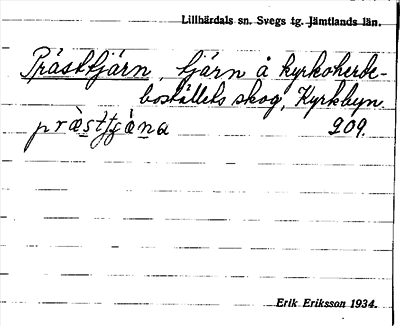 Lillhärdals sn. Svegs tg. Jämtlands län.
Prästtjärn, tjärn å kyrkoherde-
boställets skog, Kyrkbyn.
præ̀sttjæ̀na 209.
Erik Eriksson 1934.